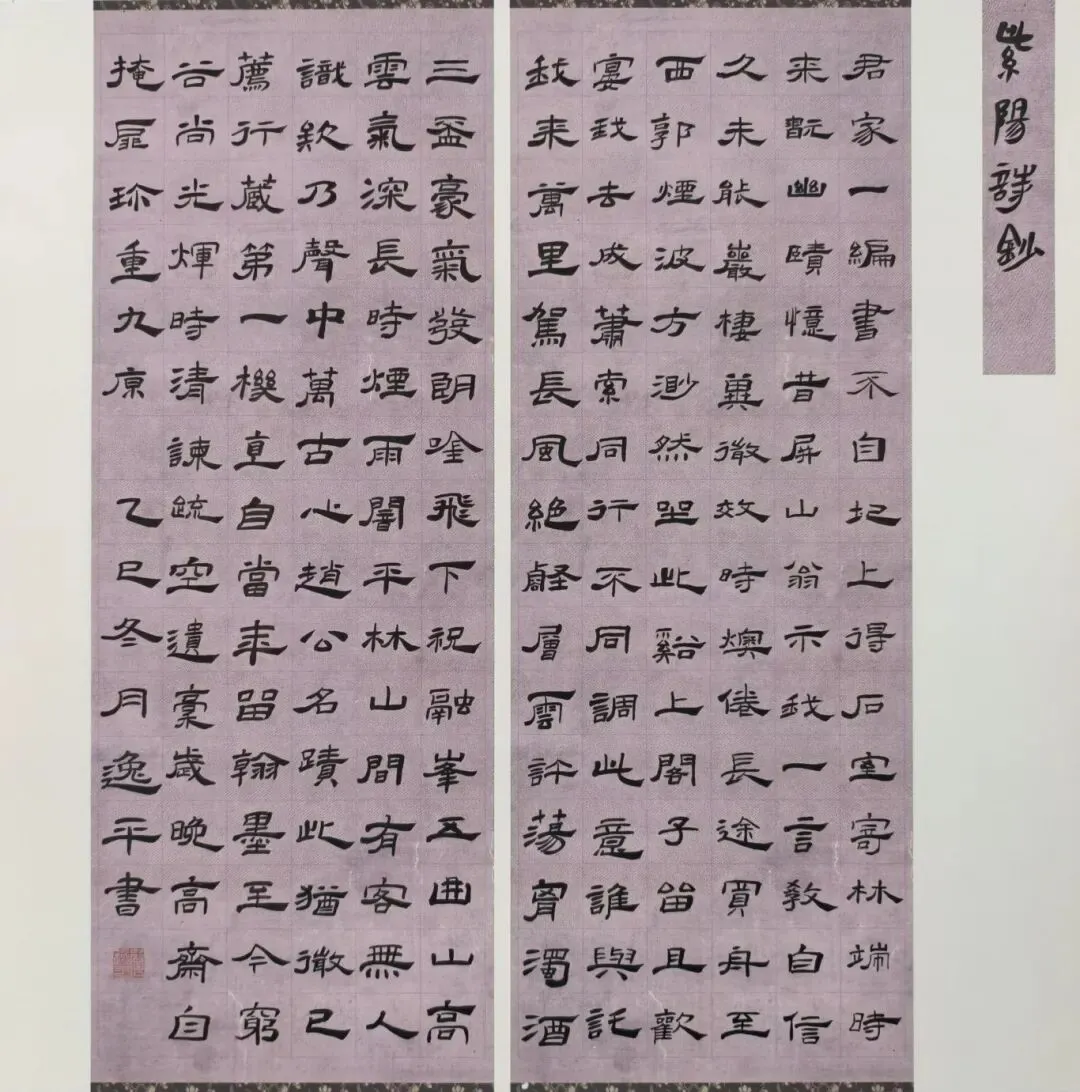 紫陽詩鈔
君家一編書不自圯上得石室寄林端時
来翫幽賾憶昔屏山翁示我一言教自信
久未能巖棲冀微效時燠倦長途買舟至
西郭煙波方渺然坐此谿上閣子留且歡
宴我去成蕭索同行不同調此意誰與託
我来萬里駕長風絕壑層雲許蕩胷濁酒
三盃豪氣發朗吟飛下祝融峯五曲山高
雲氣深長時煙雨闇平林山間有客無人
識欸乃聲中萬古心趙公名蹟此猶微已
薦行蔵第一機直自當年留翰墨至今窮
谷尚光煇時清諫疏空遺稾歲晚高齋自
掩扉珎重九原 乙巳冬月逸平書